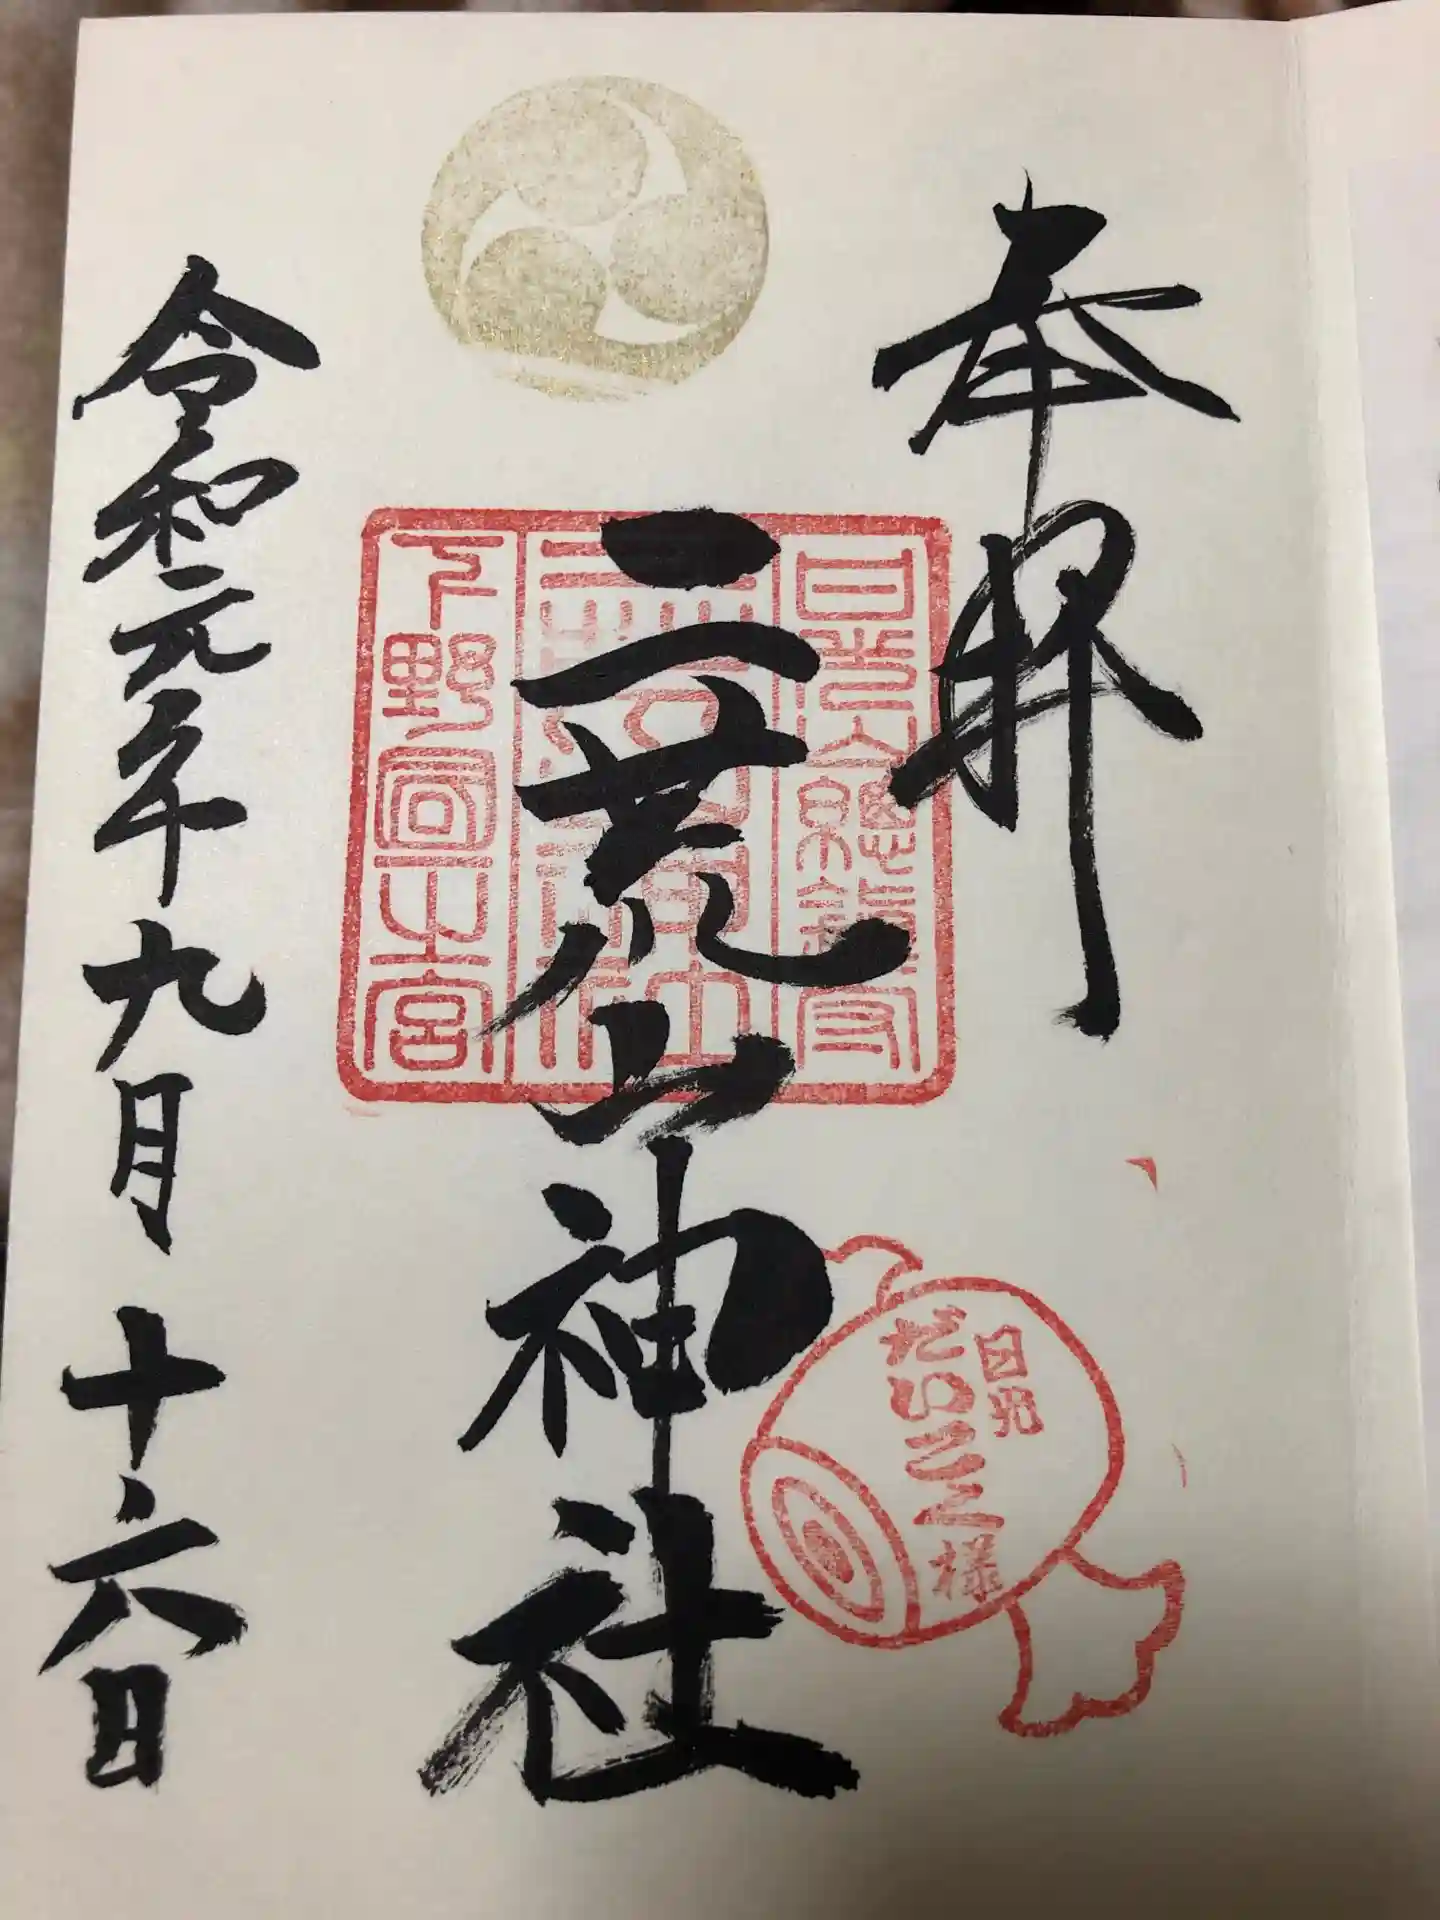 奉拝
日光総鎮守
二荒山神社
下野國一之宮
二荒山神社
日光
だいこく様
令和元年九月十六日